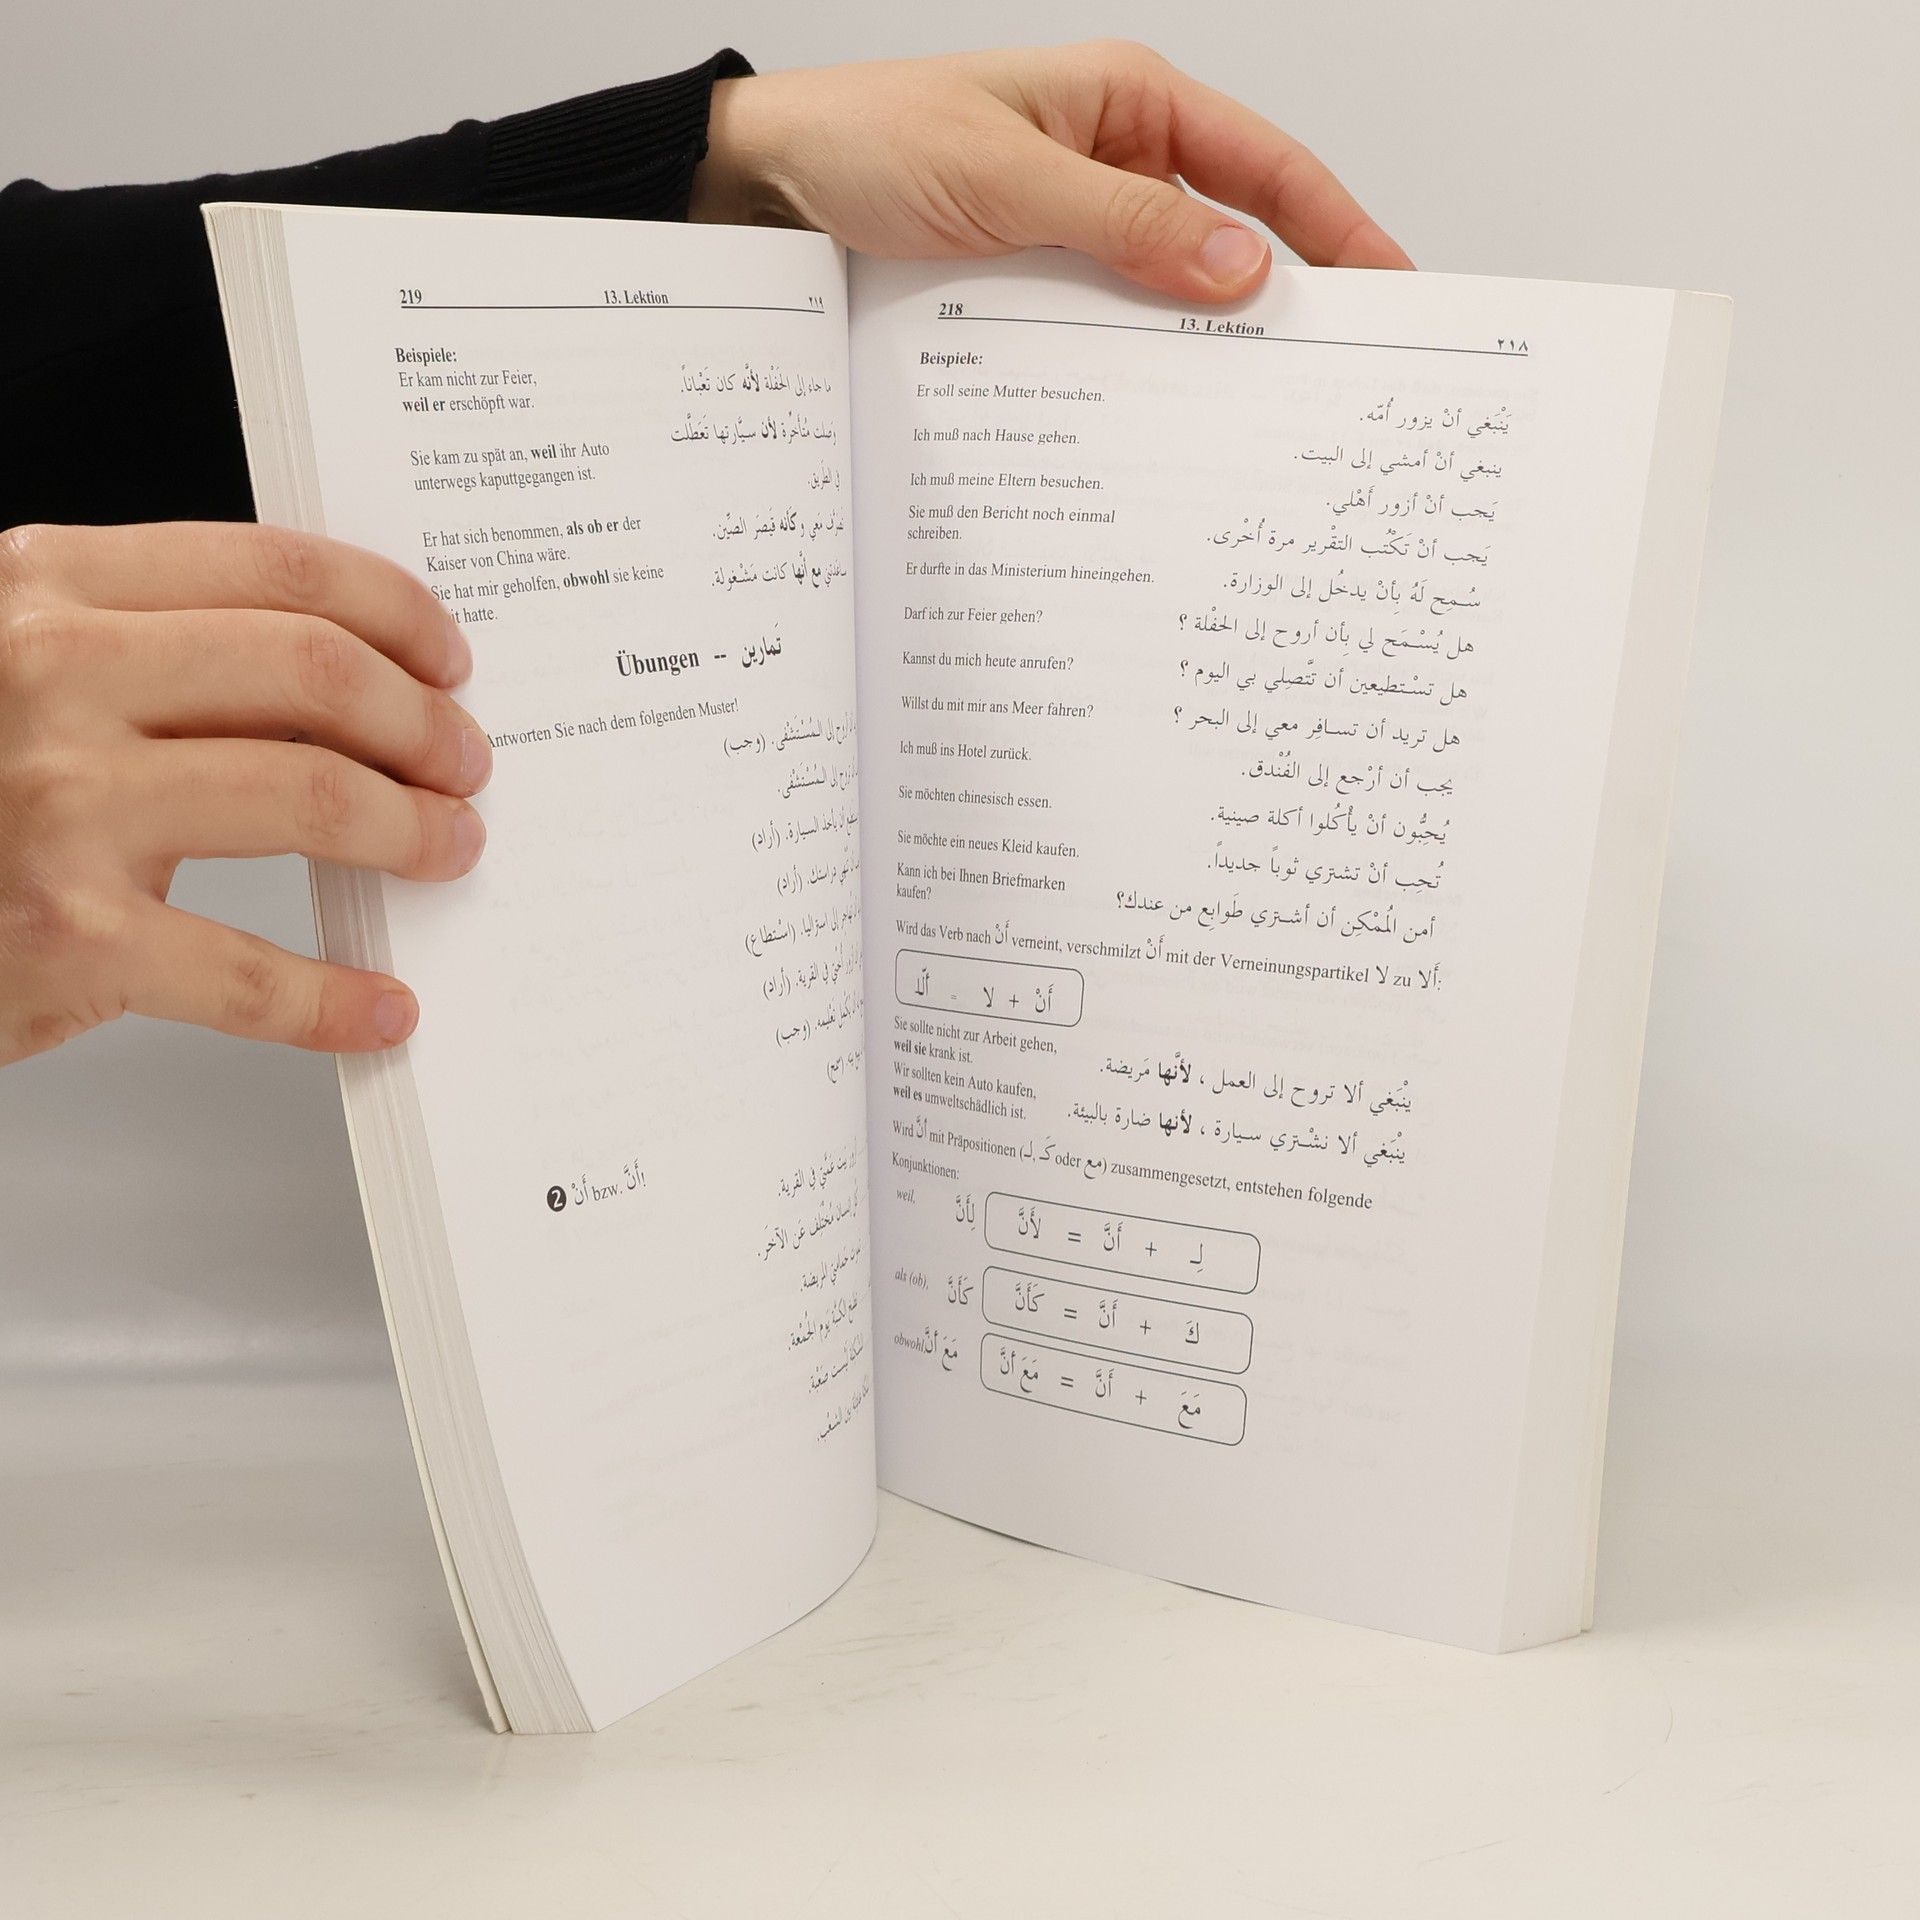 218 13. Lektion ٢١٨
Beispiele:
Er soll seine Mutter besuchen.
يَنْبَغي أنْ يزور أُمّه.
Ich muß nach Hause gehen.
ينبغي أنْ أمشي إلى البيت.
Ich muß meine Eltern besuchen.
يَجب أنْ أزور أَهْلي.
Sie muß den Bericht noch einmal
schreiben.
يَجب أنْ تَكْتُب التقْرير مرة أُخْرى.
Er durfte in das Ministerium hineingehen.
سُمِح لَهُ بِأنْ يدخُل إلى الوزارة.
Darf ich zur Feier gehen?
هل يُسْمَح لي بِأن أروح إلى الحفْلة ؟
Kannst du mich heute anrufen?
هل تسْتطيعين أن تتَّصِلي بي اليوم ؟
Willst du mit mir ans Meer fahren?
هل تريد أن تسافِر معي إلى البحر ؟
Ich muß ins Hotel zurück.
يجب أن أرْجع إلى الفُنْدق.
Sie möchten chinesisch essen.
يُحِبُّون أنْ يأْكُلوا أكلة صينية.
Sie möchte ein neues Kleid kaufen.
تُحِب أنْ تشتري ثوباً جديداً.
Kann ich bei Ihnen Briefmarken
kaufen?
أمن الُممْكِن أن أشتري طَوابِع من عندك؟
Wird das Verb nach أَنْ verneint, verschmilzt أَنْ mit der Verneinungspartikel لا zu أَلا:
أَنْ + لا = ألّا
Sie sollte nicht zur Arbeit gehen,
weil sie krank ist.
ينْبَغي ألا تروح إلى العمل ، لأنَّها مَريضة.
Wir sollten kein Auto kaufen,
weil es umweltschädlich ist.
ينْبَغي ألا نشْتري سيارة ، لأنها ضارة بالبيئة.
Wird أَنَّ mit Präpositionen (لـ, كَـ oder مع) zusammengesetzt, entstehen folgende
Konjunktionen:
weil, لِأَنَّ
لِـ + أَنَّ = لأَنَّ
als (ob), كَأَنَّ
كَ + أَنَّ = كَأَنَّ
obwohl, مَعَ أنَّ
مَعَ + أَنَّ = مَعَ أنَّ
219 13. Lektion ٢١٩
Beispiele:
Er kam nicht zur Feier,
weil er erschöpft war.
ما جاء إلى الحَفْلة لأنَّه كان تَعْباناً.
Sie kam zu spät an, weil ihr Auto
unterwegs kaputtgegangen ist.
وَصَلت مُتأخِّرة لأن سيَّارتها تَعَطَّلت
في الطَّريق.
Er hat sich benommen, als ob er der
Kaiser von China wäre.
مَعي وكَأنه قَيصَر الصِّين.
Sie hat mir geholfen, obwohl sie keine
hatte.
مع أنَّها كانت مَشْغولة.
Übungen -- تَمارين
Antworten Sie nach dem folgenden Muster!
أروح إلى الـمُسْتَشْفى. (وجب)
إلى الـمُسْتَشْفى.
أن يأخذ السيارة. (أراد)
دراستك. (أراد)
إلى استراليا. (اسْتطاع)
في القرية. (أراد)
تَعْليمه. (وجب)
❷ أَنْ bzw. أَنَّ!
في القرية.
مُخْتَلِف عَن الآخَر.
المريضة.
يَوم الجُمْعة.